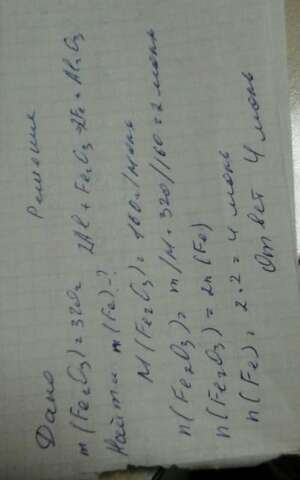 Дано Решение
m(Fe2O3)=320г 2Al+Fe2O3=2Fe+Al2O3
Найти m(Fe)-?
M(Fe2O3)=160г/моль
n(Fe2O3)=m/M=320/160=2моль
n(Fe2O3)=2n(Fe)
n(Fe)=2·2=4 моль
Ответ 4 моль